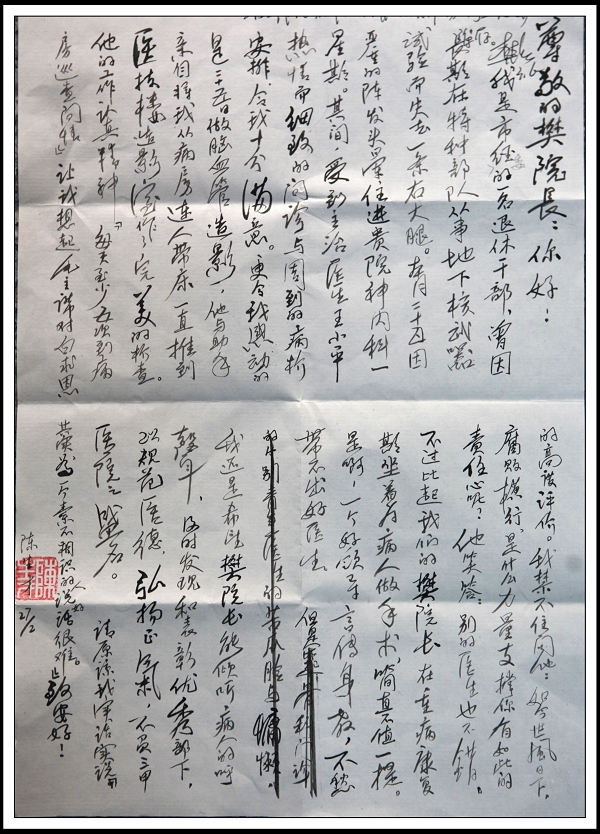 尊敬的樊院长：你好！
我是市经委的一名退休干部，曾因
长期在特种部队从事地下核武器
试验而失去一条右大腿。本月二十五因
严重的阵发头晕住进贵院神内科一
星期。其间受到主治医生王小平
热情而细致的问诊与周到的病术
安排，令我十分满意。更令我感动的
是二十五日做脑血管造影，他与助手
亲自将我从病房连人带床一直推到
医技楼造影室作了完美的检查。
他的工作认真精神，每天至少五次到病
房巡查问候，让我想起毛主席对白求恩
的高度评价。我禁不住问他：如今世风日下，
腐败横行，是什么力量支撑你有如此的
责任心呢？他笑答：别的医生也不错。
不过比起我们的樊院长在重病康复
期坐着为病人做手术，简直不值一提。
是啊，一个好领导言传身教，不愁
带不出好医生。但是
的个别医生的
我还是希望樊院长能倾听病人的呼
声，及时发现和表彰优秀部下，
以规范医德，弘扬正气，不负三甲
医院之盛名。请原谅我深语实说，
其实为一个素不相识的人说好话很难。致安好！
陈
27/2